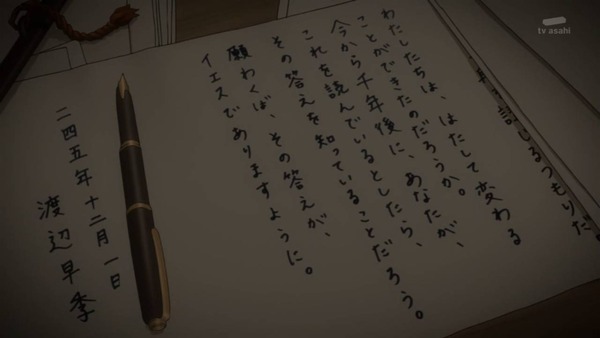 手記しるつもりだ
わたしたちは、はたして変わる
ことができたのだろうか。
今から千年後に、あなたが、
これを読んでいるとしたら、
その答えを知っていることだろう。
願わくば、その答えが、
イエスでありますように。
二四五年十二月一日
渡辺早季
tv asahi